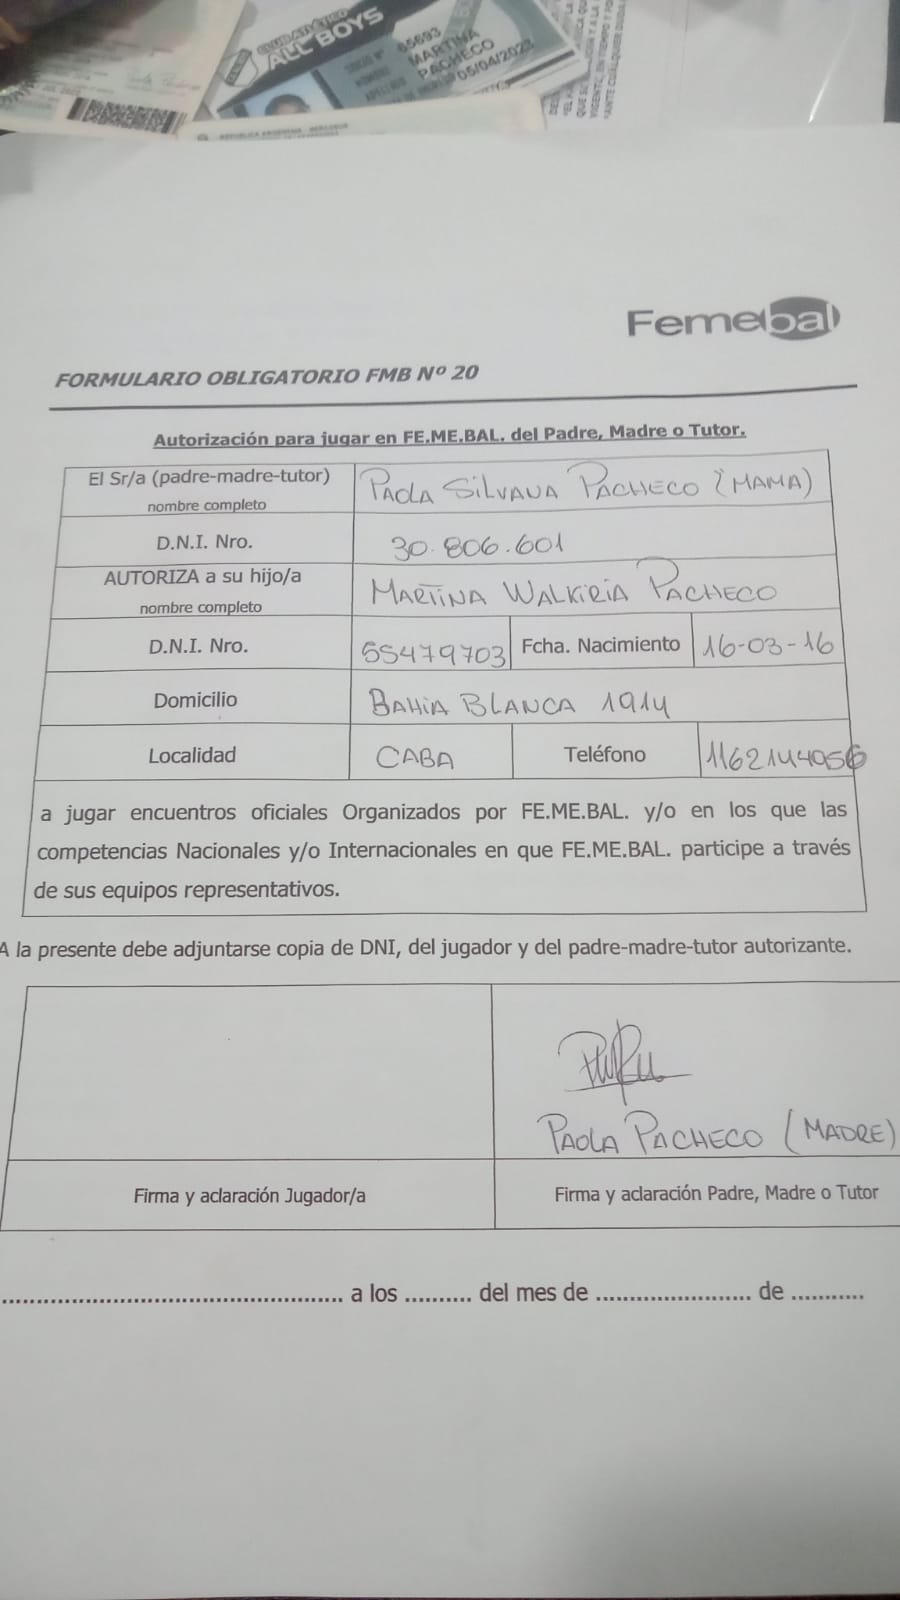 CLUB ATLÉTICO
ALL BOYS
SOCIO Nº 65693
NOMBRE MARTINA
APELLIDO PACHECO
05/04/202
REPUBLICA ARGENTINA - MERCOSUR
Femebal
FORMULARIO OBLIGATORIO FMB Nº 20
Autorización para jugar en FE.ME.BAL. del Padre, Madre o Tutor.
El Sr/a (padre-madre-tutor) nombre completo PAOLA SILVANA PACHECO (MAMA)
D.N.I. Nro. 30.806.601
AUTORIZA a su hijo/a nombre completo MARTINA WALKIRIA PACHECO
D.N.I. Nro. 55479703 Fcha. Nacimiento 16-03-16
Domicilio BAHIA BLANCA 1914
Localidad CABA Teléfono 1162144056
a jugar encuentros oficiales Organizados por FE.ME.BAL. y/o en los que las
competencias Nacionales y/o Internacionales en que FE.ME.BAL. participe a través
de sus equipos representativos.
A la presente debe adjuntarse copia de DNI, del jugador y del padre-madre-tutor autorizante.
PAOLA PACHECO (MADRE)
Firma y aclaración Jugador/a Firma y aclaración Padre, Madre o Tutor
.................................................. a los .......... del mes de ....................... de ...........